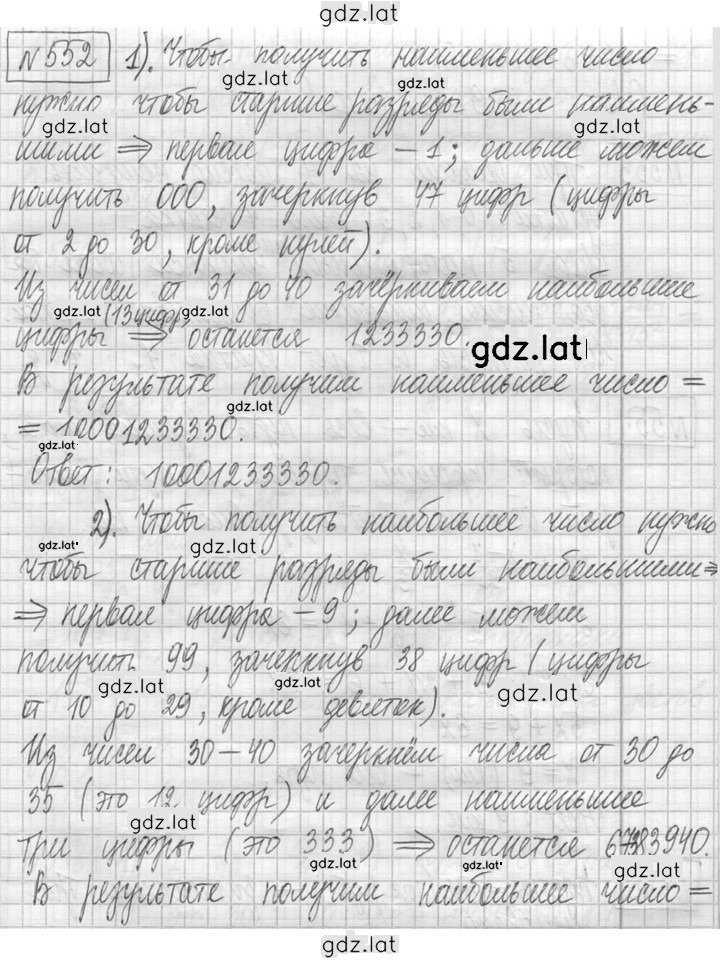 gdz.lat
№552 1). Чтобы получить наименьшее число
gdz.lat gdz.lat
нужно чтобы старшие разряды были наимень-
gdz.lat gdz.lat
шими ⇒ первая цифра – 1; дальше можем
получить 000, зачеркнув 47 цифр (цифры
от 2 до 30, кроме нулей).
Из чисел от 31 до 40 зачёркиваем наибольшие
gdz.lat (13 цифр) gdz.lat
цифры ⇒ останется 1233330.
gdz.lat
В результате получим наименьшее число =
gdz.lat
= 10001233330.
gdz.lat
Ответ: 10001233330.
2). Чтобы получить наибольшее число нужно
gdz.lat gdz.lat
чтобы старшие разряды были наибольшими ⇒
⇒ первая цифра – 9; далее можем
получить 99, зачеркнув 38 цифр (цифры
gdz.lat gdz.lat gdz.lat
от 10 до 29, кроме девяток).
Из чисел 30 – 40 зачеркнём числа от 30 до
35 (это 12 цифр) и далее наименьшие
gdz.lat
три цифры (это 333) ⇒ останется 67383940.
gdz.lat gdz.lat
В результате получим наибольшее число =
gdz.lat